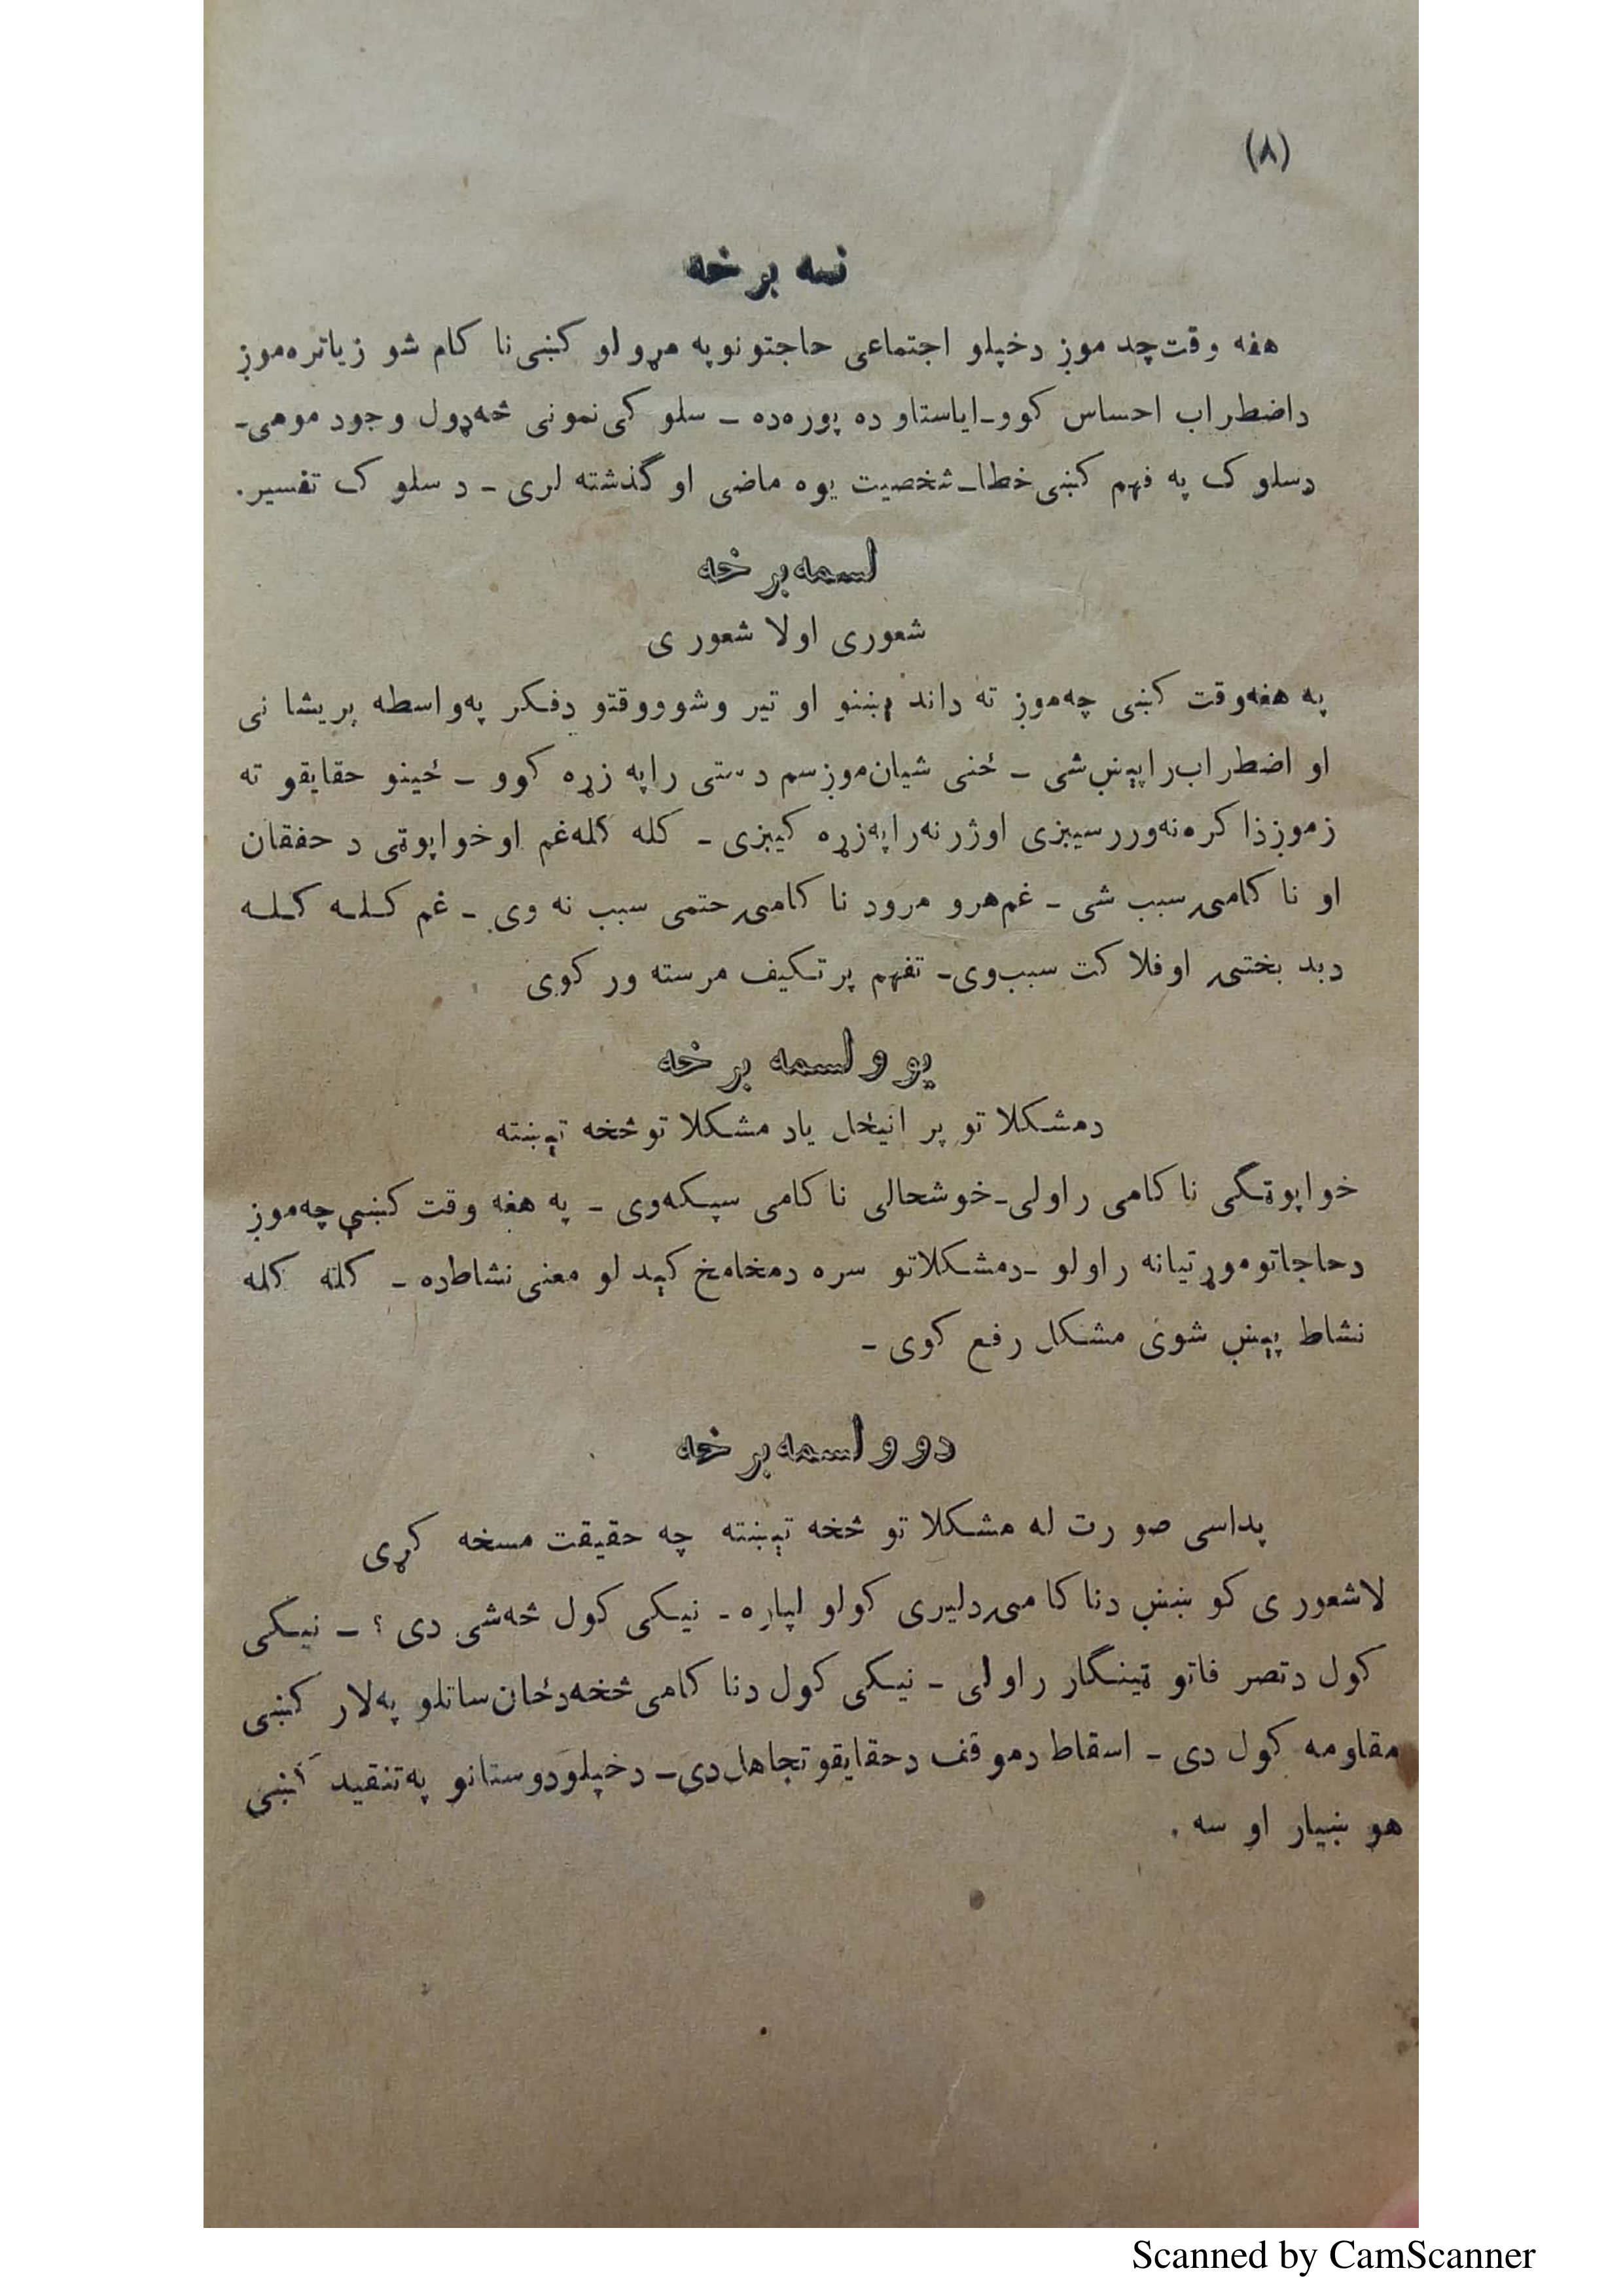 (۸)
نسه برخه
هغه وقت چه موږ دخپلو اجتماعی حاجتونو په مړولو کښی نا کام شو زیاتره موږ
داضطراب احساس کوو ـ ایاستاو ده پوره ده ـ سلو کی نمونی څه ډول وجود مومی ـ
دسلو ک په فهم کښی خطا ـ شخصیت یوه ماضی او گذشته لری ـ د سلو ک تفسیر .
لسمه برخه
شعوری اولا شعور ی
په هغه وقت کښی چه موږ ته داند ېښنو او تیر وشوو وقتو دفکر په واسطه پریشا نی
او اضطراب را پېښ شی ـ ځنی شیان موږ سم د ستی را په زړه کوو ـ ځینو حقایقو ته
زموږ ذا کره نه وررسیږی اوژر نه را په زړه کیږی ـ کله کله غم او خواپوټی د حفقان
او نا کامۍ سبب شی ـ غم هرو مرود نا کامۍ حتمی سبب نه وی ـ غم کله کله
دبد بختۍ اوفلا کت سبب وی ـ تفهم پر تکیف مرسته ور کوی
یو و لسمه بر خه
دمشکلا تو پر انیځل یاد مشکلا تو څخه تېښته
خواپوټگی نا کامی راولی ـ خوشحالی نا کامی سپکه وی ـ په هغه وقت کښی چه موږ
دحاجاتو موړتیا نه راولو ـ دمشکلاتو سره دمخامخ کېد لو معنی نشاط ده ـ کله کله
نشاط پېښ شوی مشکل رفع کوی ـ
دو و لسمه بر خه
پداسی صو رت له مشکلا تو څخه تېښته چه حقیقت مسخه کړی
لاشعور ی کو ښښ دنا کا مۍ دلیری کولو لپاره ـ نیکی کول څه شی دی ؟ ـ نیکی
کول دتصر فاتو ټینگار راولی ـ نیکی کول دنا کامی څخه دځان ساتلو په لار کښی
مقاومه کول دی ـ اسقاط دموقف دحقایقو تجاهل دی ـ دخپلو دوستانو په تنقید کښی
هو ښیار او سه .
Scanned by CamScanner